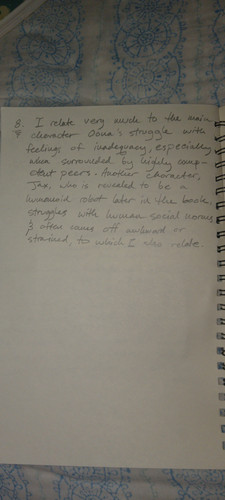 8. I relate very much to the main
9 character Oona's struggle with
feelings of inadequacy, especially
when surrounded by highly comp-
etent peers. Another character,
Jax, who is revealed to be a
humanoid robot later in the book
struggles with human social norms
& often comes off awkward or
strained, to which I also relate.